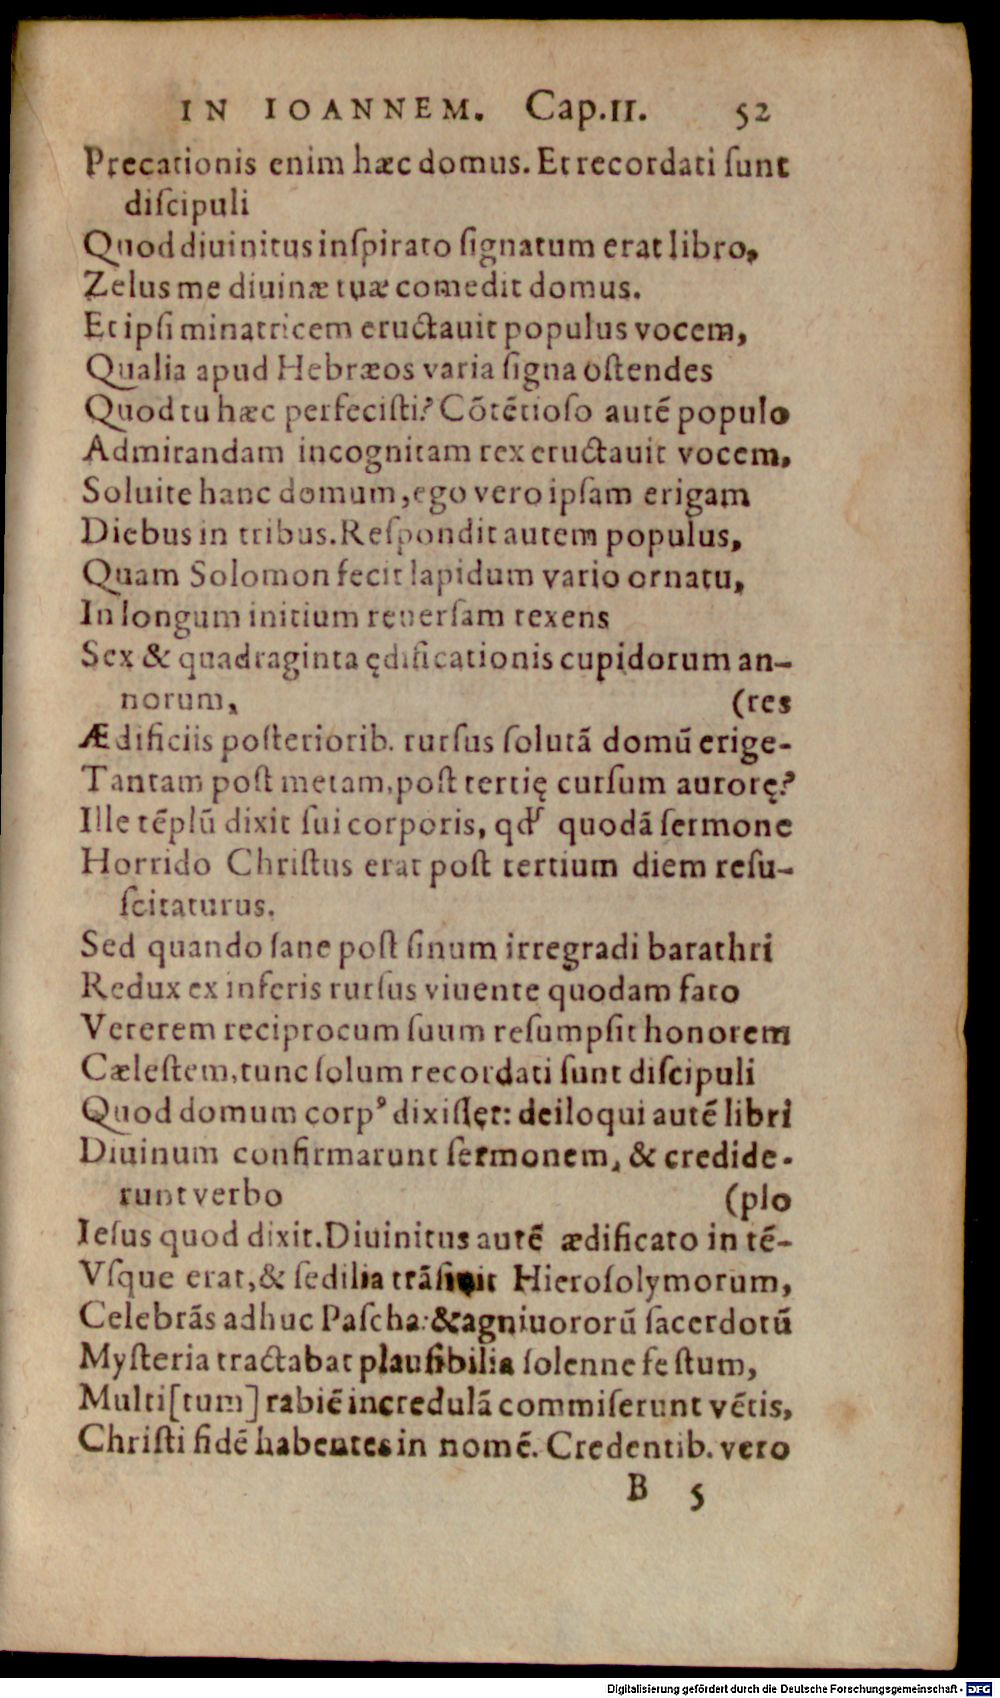 IN IOANNEM. Cap.II. 52
Precationis enim hæc domus. Et recordati ſunt
diſcipuli
Quod diuinitus inſpirato ſignatum erat libro,
Zelus me diuinæ tuæ comedit domus.
Et ipſi minatricem eructauit populus vocem,
Qualia apud Hebræos varia ſigna oſtendes
Quod tu hæc perfeciſti? Cōtētioſo autē populo
Admirandam incognitam rex eructauit vocem,
Soluite hanc domum, ego vero ipſam erigam
Diebus in tribus. Reſpondit autem populus,
Quam Solomon fecit lapidum vario ornatu,
In longum initium reuerſam texens
Sex & quadraginta ędificationis cupidorum an-
norum, (res
Ædificiis poſteriorib. rurſus ſolutā domū erige-
Tantam poſt metam, poſt tertię curſum aurorę?
Ille tēplū dixit ſui corporis, qđ quodā ſermone
Horrido Chriſtus erat poſt tertium diem reſu-
ſcitaturus.
Sed quando ſane poſt ſinum irregradi barathri
Redux ex inferis rurſus viuente quodam fato
Veterem reciprocum ſuum reſumpſit honorem
Cæleſtem, tunc ſolum recordati ſunt diſcipuli
Quod domum corpꝰ dixiſſęt: deiloqui autē libri
Diuinum confirmarunt ſermonem, & credide-
runt verbo (plo
Ieſus quod dixit. Diuinitus autē ædificato in tē-
Vſque erat, & ſedilia trāſiuit Hieroſolymorum,
Celebrās adhuc Paſcha: & agniuororū ſacerdotū
Myſteria tractabat plauſibilia ſolenne feſtum,
Multi [tum] rabiē incredulā commiſerunt vētis,
Chriſti fidē habentes in nomē. Credentib. vero
B 5
Digitalisierung gefördert durch die Deutsche Forschungsgemeinschaft - DFG